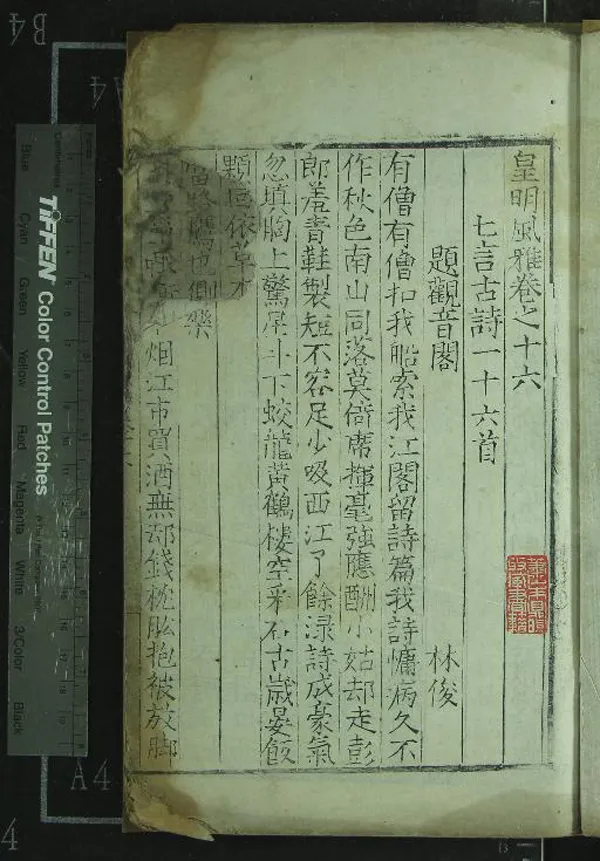 皇明風雅卷之十六
七言古詩一十六首
題觀音閣
林俊
有僧有僧扣我船索我江閣留詩篇我詩慵病久不
作秋色南山同落莫倚席揮毫強應酬小姑却走彭
郎羞青鞋製短不容足少吸西江了餘渌詩成豪氣
忽填胸上驚星斗下蛟龍黃鶴樓空采石古歲晏飲
顆區依草木
當時
烟江市買酒無却錢枕肱抱被放脚
TIFFEN Color Control Patches
Blue
Cyan
Green
Yellow
Red
Magenta
White
3/Color
Black
B4
A4
A4
4